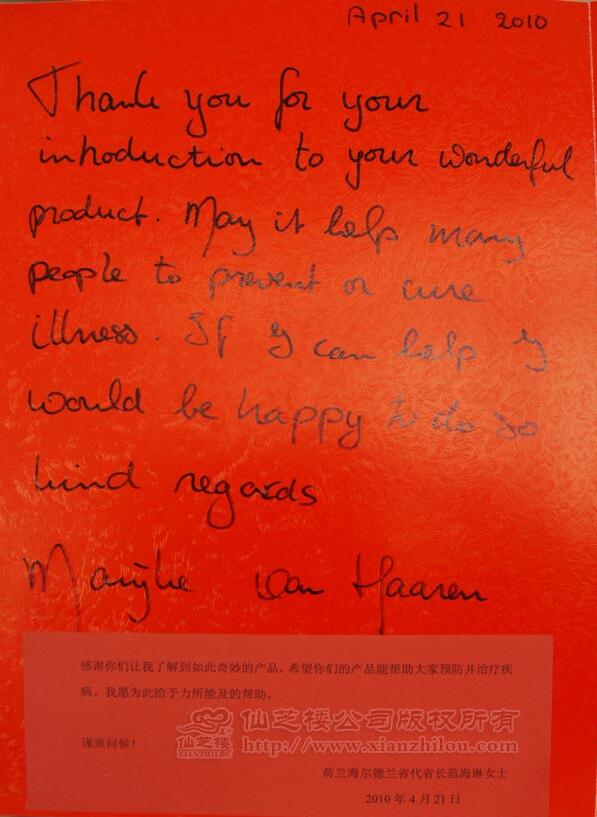 April 21 2010
Thank you for your
introduction to your wonderful
product. May it help many
people to prevent or cure
illness. If I can help I
would be happy to do so
kind regards
Marijke van Haaren
感谢你们让我了解到如此奇妙的产品，希望你们的产品能帮助大家预防并治疗疾
病。我愿为此给予力所能及的帮助。
仙芝楼公司版权所有
仙芝楼
XIANZHILOU
http://www.xianzhilou.com
谨致问候！
荷兰海尔德兰省代省长范海琳女士
2010 年 4 月 21 日